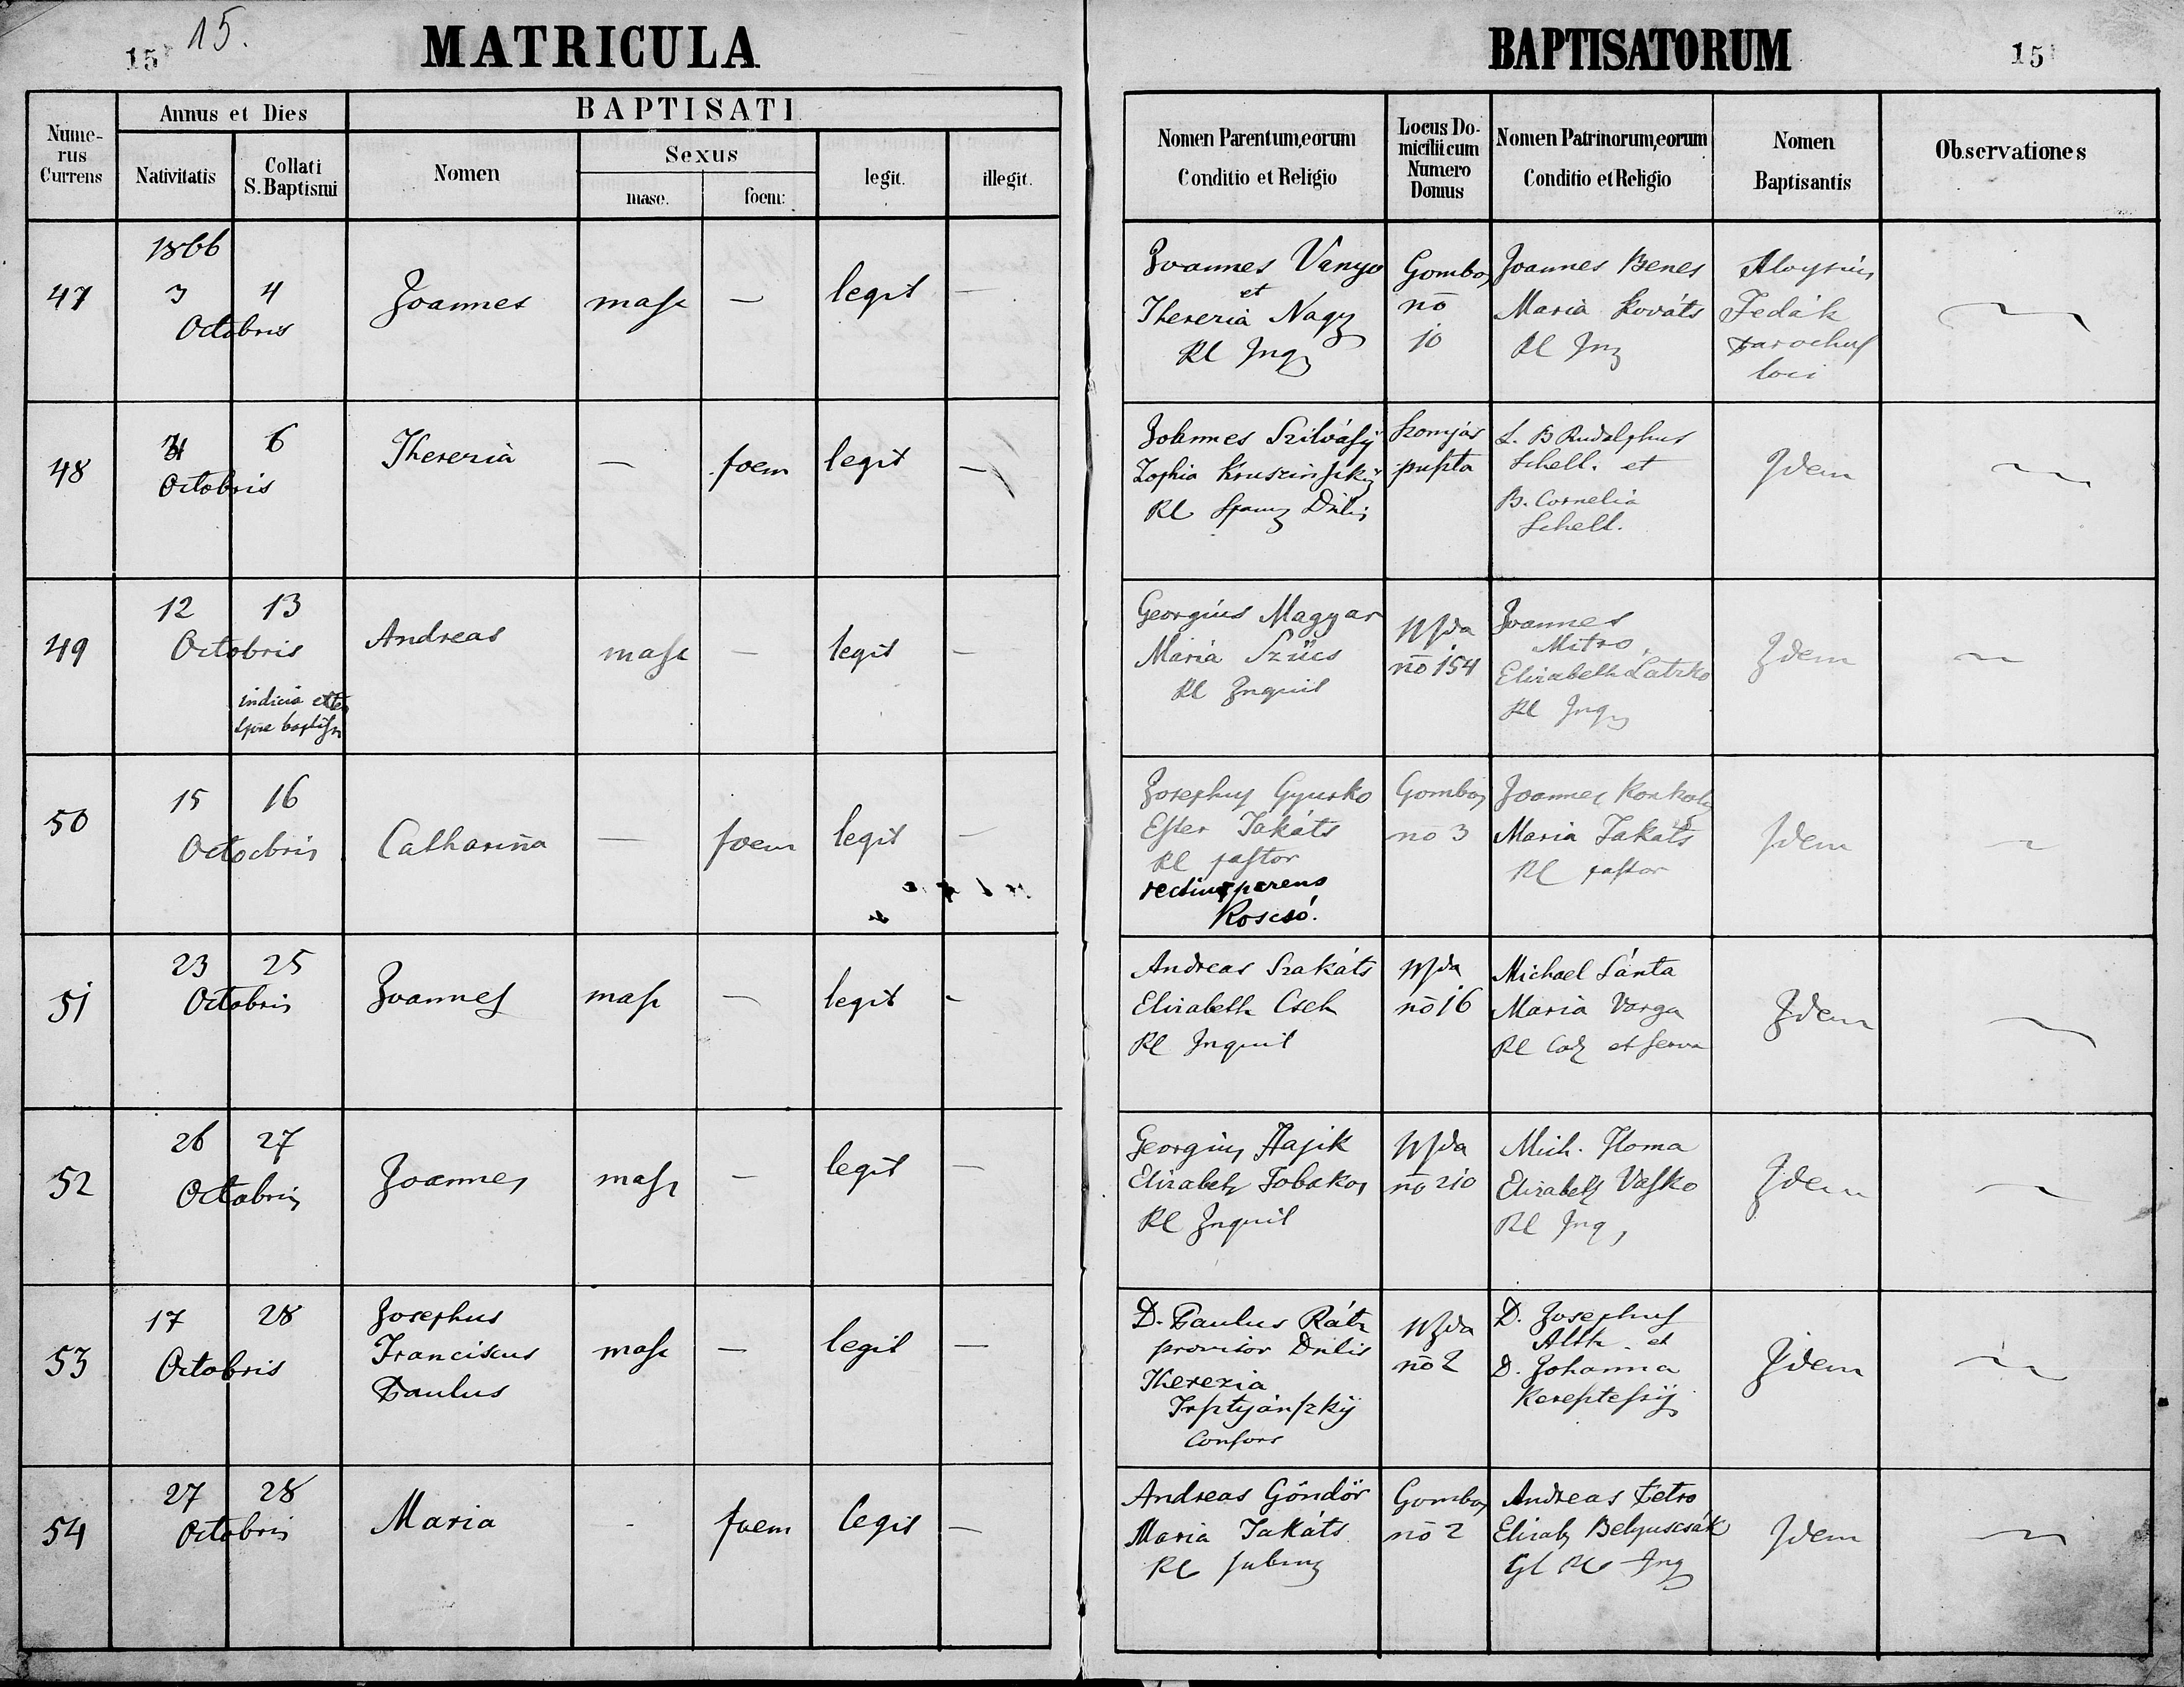 15 15.
MATRICULA
BAPTISATORUM
15
Numerus Currens
Annus et Dies
Nativitatis
Collati S. Baptismi
BAPTISATI
Nomen
Sexus
masc.
foem:
legit.
illegit.
Nomen Parentum, eorum Conditio et Religio
Locus Domicilii cum Numero Domus
Nomen Patrinorum, eorum Conditio et Religio
Nomen Baptisantis
Observationes
1866
47
3 4
Octobris
Joannes
masc
—
legit
—
Joannes Vanyo
et
Therezia Nagy
RC Inq
Gombos
no
10
Joannes Benes
Maria Kováts
RC Inq
Aloysius
Fedák
Parochus
loci
48
6
Octobris
Therezia
—
foem
legit
—
Johannes Szilvásÿ
Zophia
RC Dnlis
puszta
L. B. Rudolphus
Schell. et
B. Cornelia
Schell.
Idem
49
12 13
Octobris
indicia
Andreas
masc
—
legit
—
Georgius Magyar
Maria Szücs
RC Inquil
Nzda
no 154
Joannes
Mitro,
Elizabeth Latzko
RC Inq
Idem
50
15 16
Octocbris
Catharina
—
foem
legit
—
Josephus Gyurko
Eszter Takáts
RC pastor
rectius parens
Roscsó.
Gombos
no 3
Joannes Konkoly
Maria Takáts
RC pastor
Idem
51
23 25
Octobris
Joannes
masc
—
legit
-
Andreas Szakáts
Elizabeth Cseh
RC Inquil
Nzda
no 16
Michael Sánta
Maria Varga
RC et serva
Idem
52
26 27
Octobris
Joannes
masc
—
legit
—
Georgius Hajik
Elizabeth Tobakos
RC Inquil
Nzda
no 210
Mich. Homa
Elizabeth Vasko
RC Inq,
Idem
53
17 28
Octobris
Josephus
Franciscus
Paulus
masc
—
legit
—
D. Paulus Rátz
provisor Dnlis
Therezia
Consors
Nzda
no 2
D. Josephus
Alth. et
D. Johanna
Idem
54
27 28
Octobris
Maria
-
foem
legit
—
Andreas Göndör
Maria Takáts
RC
Gombos
no 2
Andreas Petro
Elizab Belyuscsák
GC RC Inq
Idem